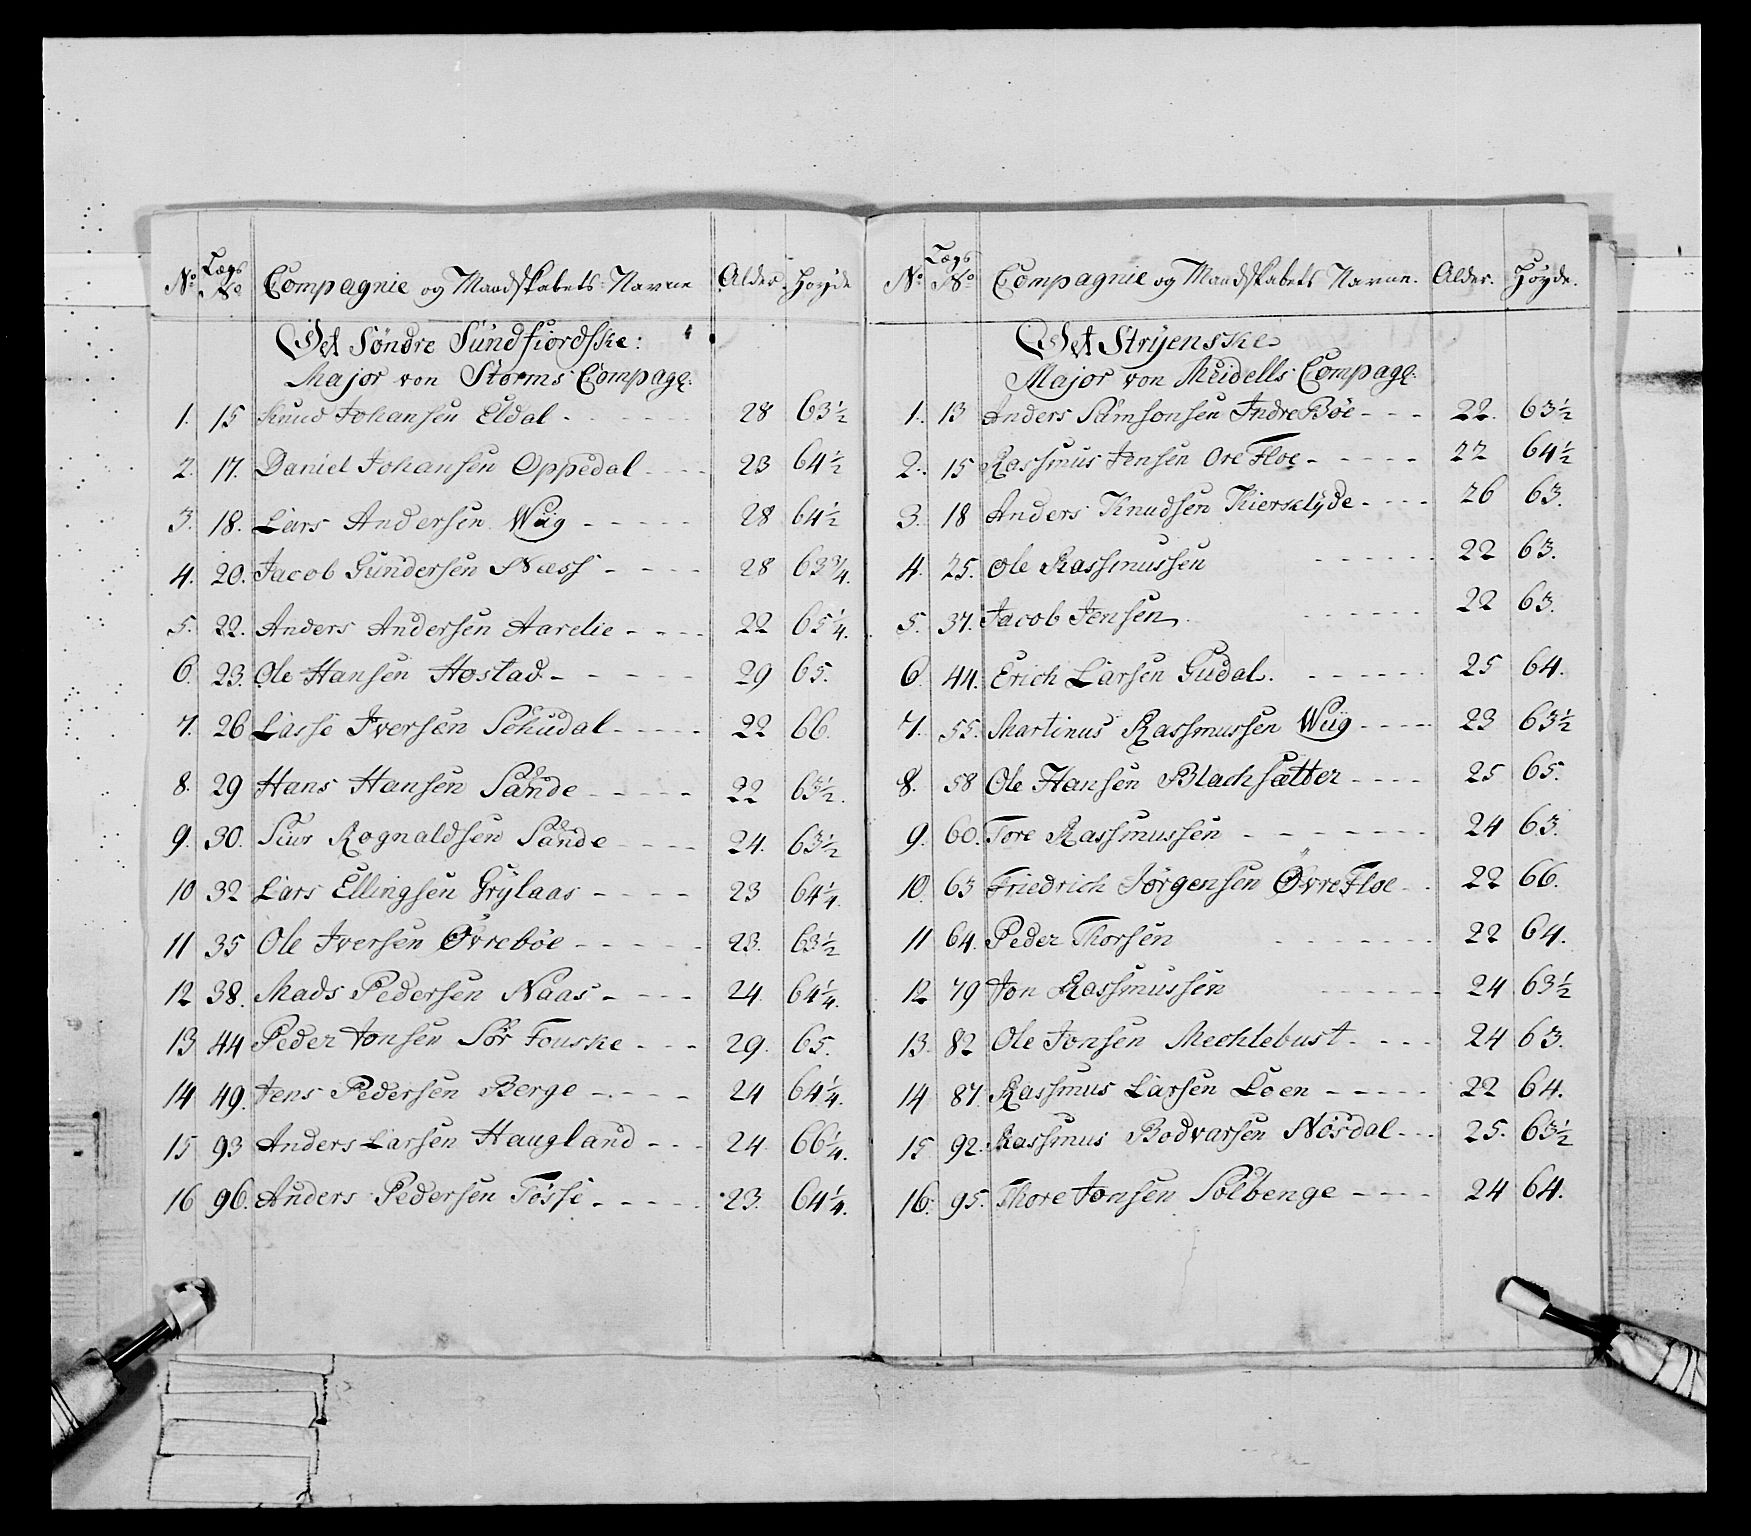 No Lægs No Compagnie og Mandskabets Navne Alder. Høyde
Det Søndre Sundfiordske:
Major von Storms Compage:
1. 15 Knud Johansen Eldal - 28 63½
2. 17. Daniel Johansen Oppedal - 23 64½
3. 18. Lars Andersen Wiig - 28 64½
4. 20. Jacob Gundersen Næss - 28 63¾.
5. 22. Anders Andersen Aarelie - 22 65¼.
6. 23. Ole Hansen Hostad - 29 65.
7. 26 Lasse Iversen Schudal - 22 66.
8. 29 Hans Hansen Sande - 22 63½.
9. 30. Siur Rognaldsen Sande - 24. 63½
10 32 Lars Ellingsen Grylaas - 23 64¼.
11 35 Ole Iversen Øvrebøe - 23. 63½
12 38. Mads Pedersen Naas - 24. 64¼.
13 44 Peder Jonsen Sør Fouske - 29. 65.
14 49. Jens Pedersen Berge - 24 64¼.
15 93 Anders Larsen Haugland - 24 66¼.
16 96. Anders Pedersen Tøsse - 23. 64¼.
No Lægs No Compagnie og Mandskabets Navne. Alder. Høyde.
Det Stryenske
Major von Meidells Compage:
1. 13 Anders Samsonsen Indre Bøe - 22. 63½
2. 15 Rassmus Jensen Ore Floe - 22 64½
3. 18 Anders Knudsen - 26 63.
4. 25. Ole Rassmussen - 22 63.
5. 37. Jacob Jensen - 22 63.
6. 44. Erich Larsen Gudal. - 25 64.
7. 55. Martinus Rassmussen Wiig - 23 63½
8. 58 Ole Hansen Blachsætter - 25 65.
9. 60. Tore Rassmussen - 24 63.
10. 63 Friedrich Jørgensen Øvre Floe - 22 66.
11 64. Peder Thorsen - 22 64.
12 79 Jon Rassmussen - 24 63½
13. 82 Ole Jonsen Mechlebust - 24 63.
14 87. Rassmus Larsen Loen - 22 64.
15 92. Rassmus Bodvarsen Nosdal - 25. 63½
16. 95. Thore Jonsen Solbenge - 24 64.